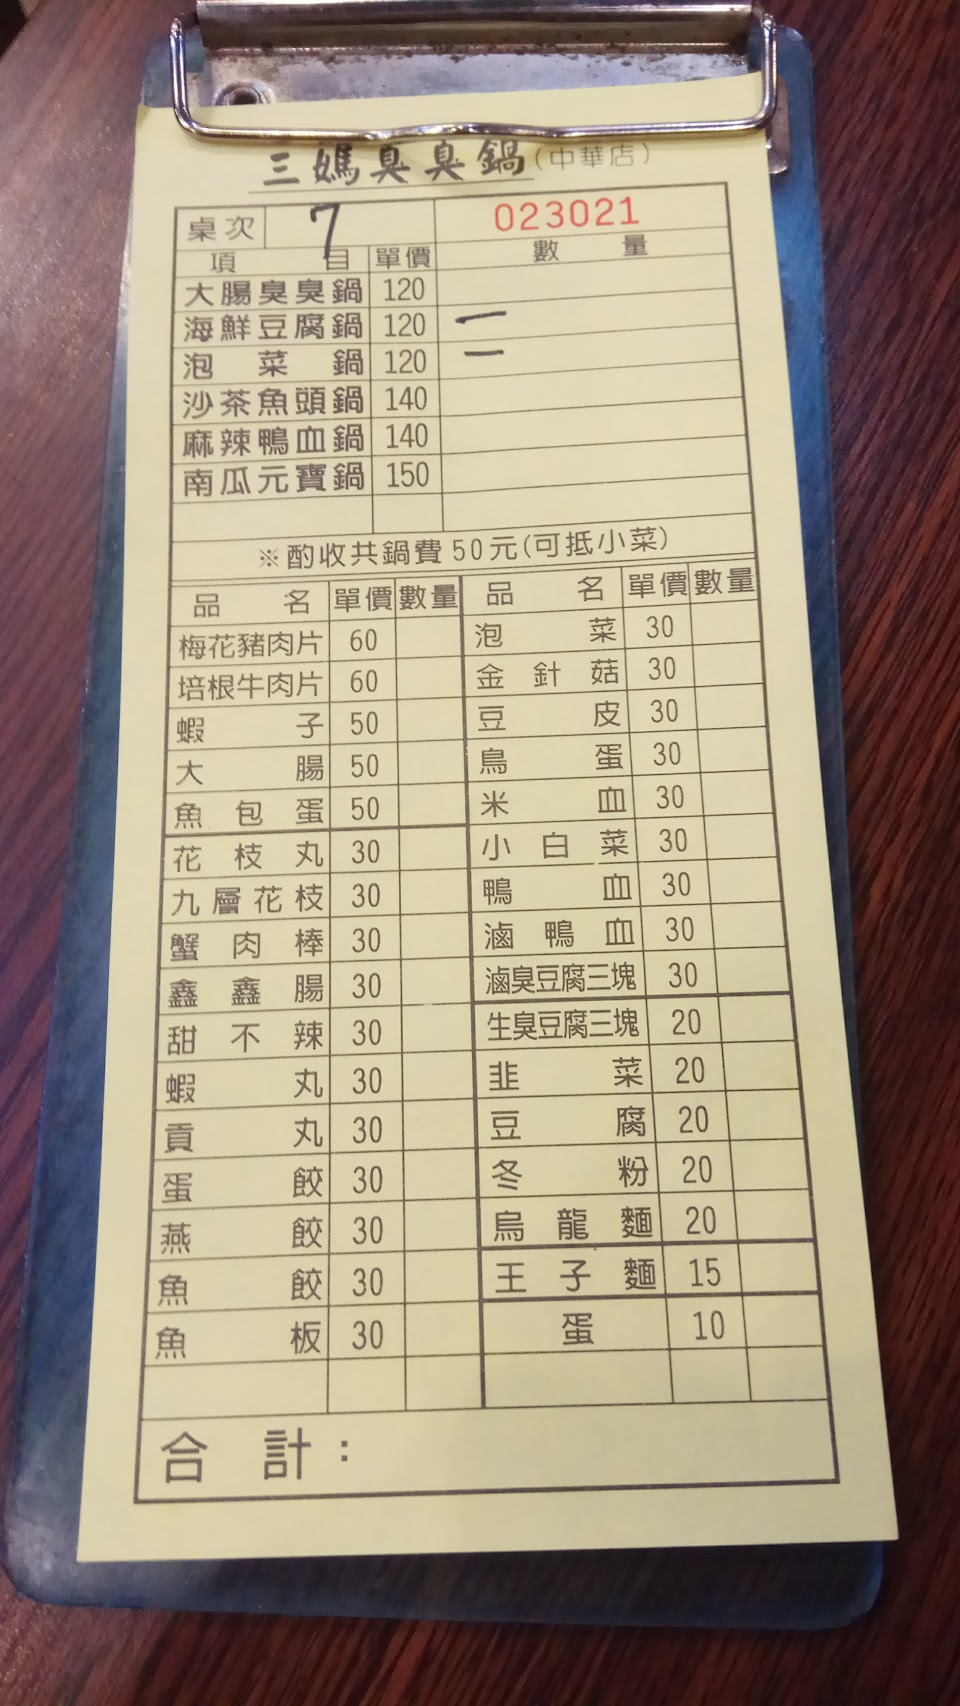 三媽臭臭鍋(中華店)
桌次 7 023021
項目 單價 數量
大腸臭臭鍋 120
海鮮豆腐鍋 120 一
泡菜鍋 120 一
沙茶魚頭鍋 140
麻辣鴨血鍋 140
南瓜元寶鍋 150
※酌收共鍋費50元(可抵小菜)
品名 單價 數量 品名 單價 數量
梅花豬肉片 60 泡菜 30
培根牛肉片 60 金針菇 30
蝦子 50 豆皮 30
大腸 50 鳥蛋 30
魚包蛋 50 米血 30
花枝丸 30 小白菜 30
九層花枝 30 鴨血 30
蟹肉棒 30 滷鴨血 30
鑫鑫腸 30 滷臭豆腐三塊 30
甜不辣 30 生臭豆腐三塊 20
蝦丸 30 韭菜 20
貢丸 30 豆腐 20
蛋餃 30 冬粉 20
燕餃 30 烏龍麵 20
魚餃 30 王子麵 15
魚板 30 蛋 10
合計：